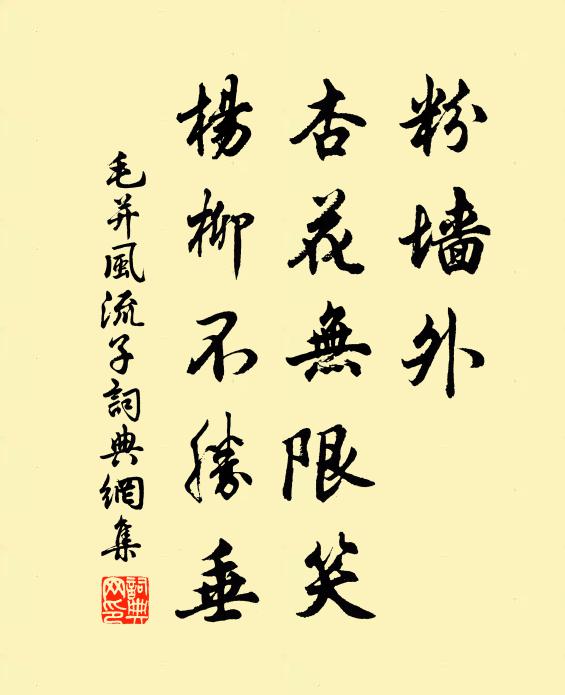 粉墙外
杏花無限笑
楊柳不勝垂
毛并風流子詞典網集
詞典网印